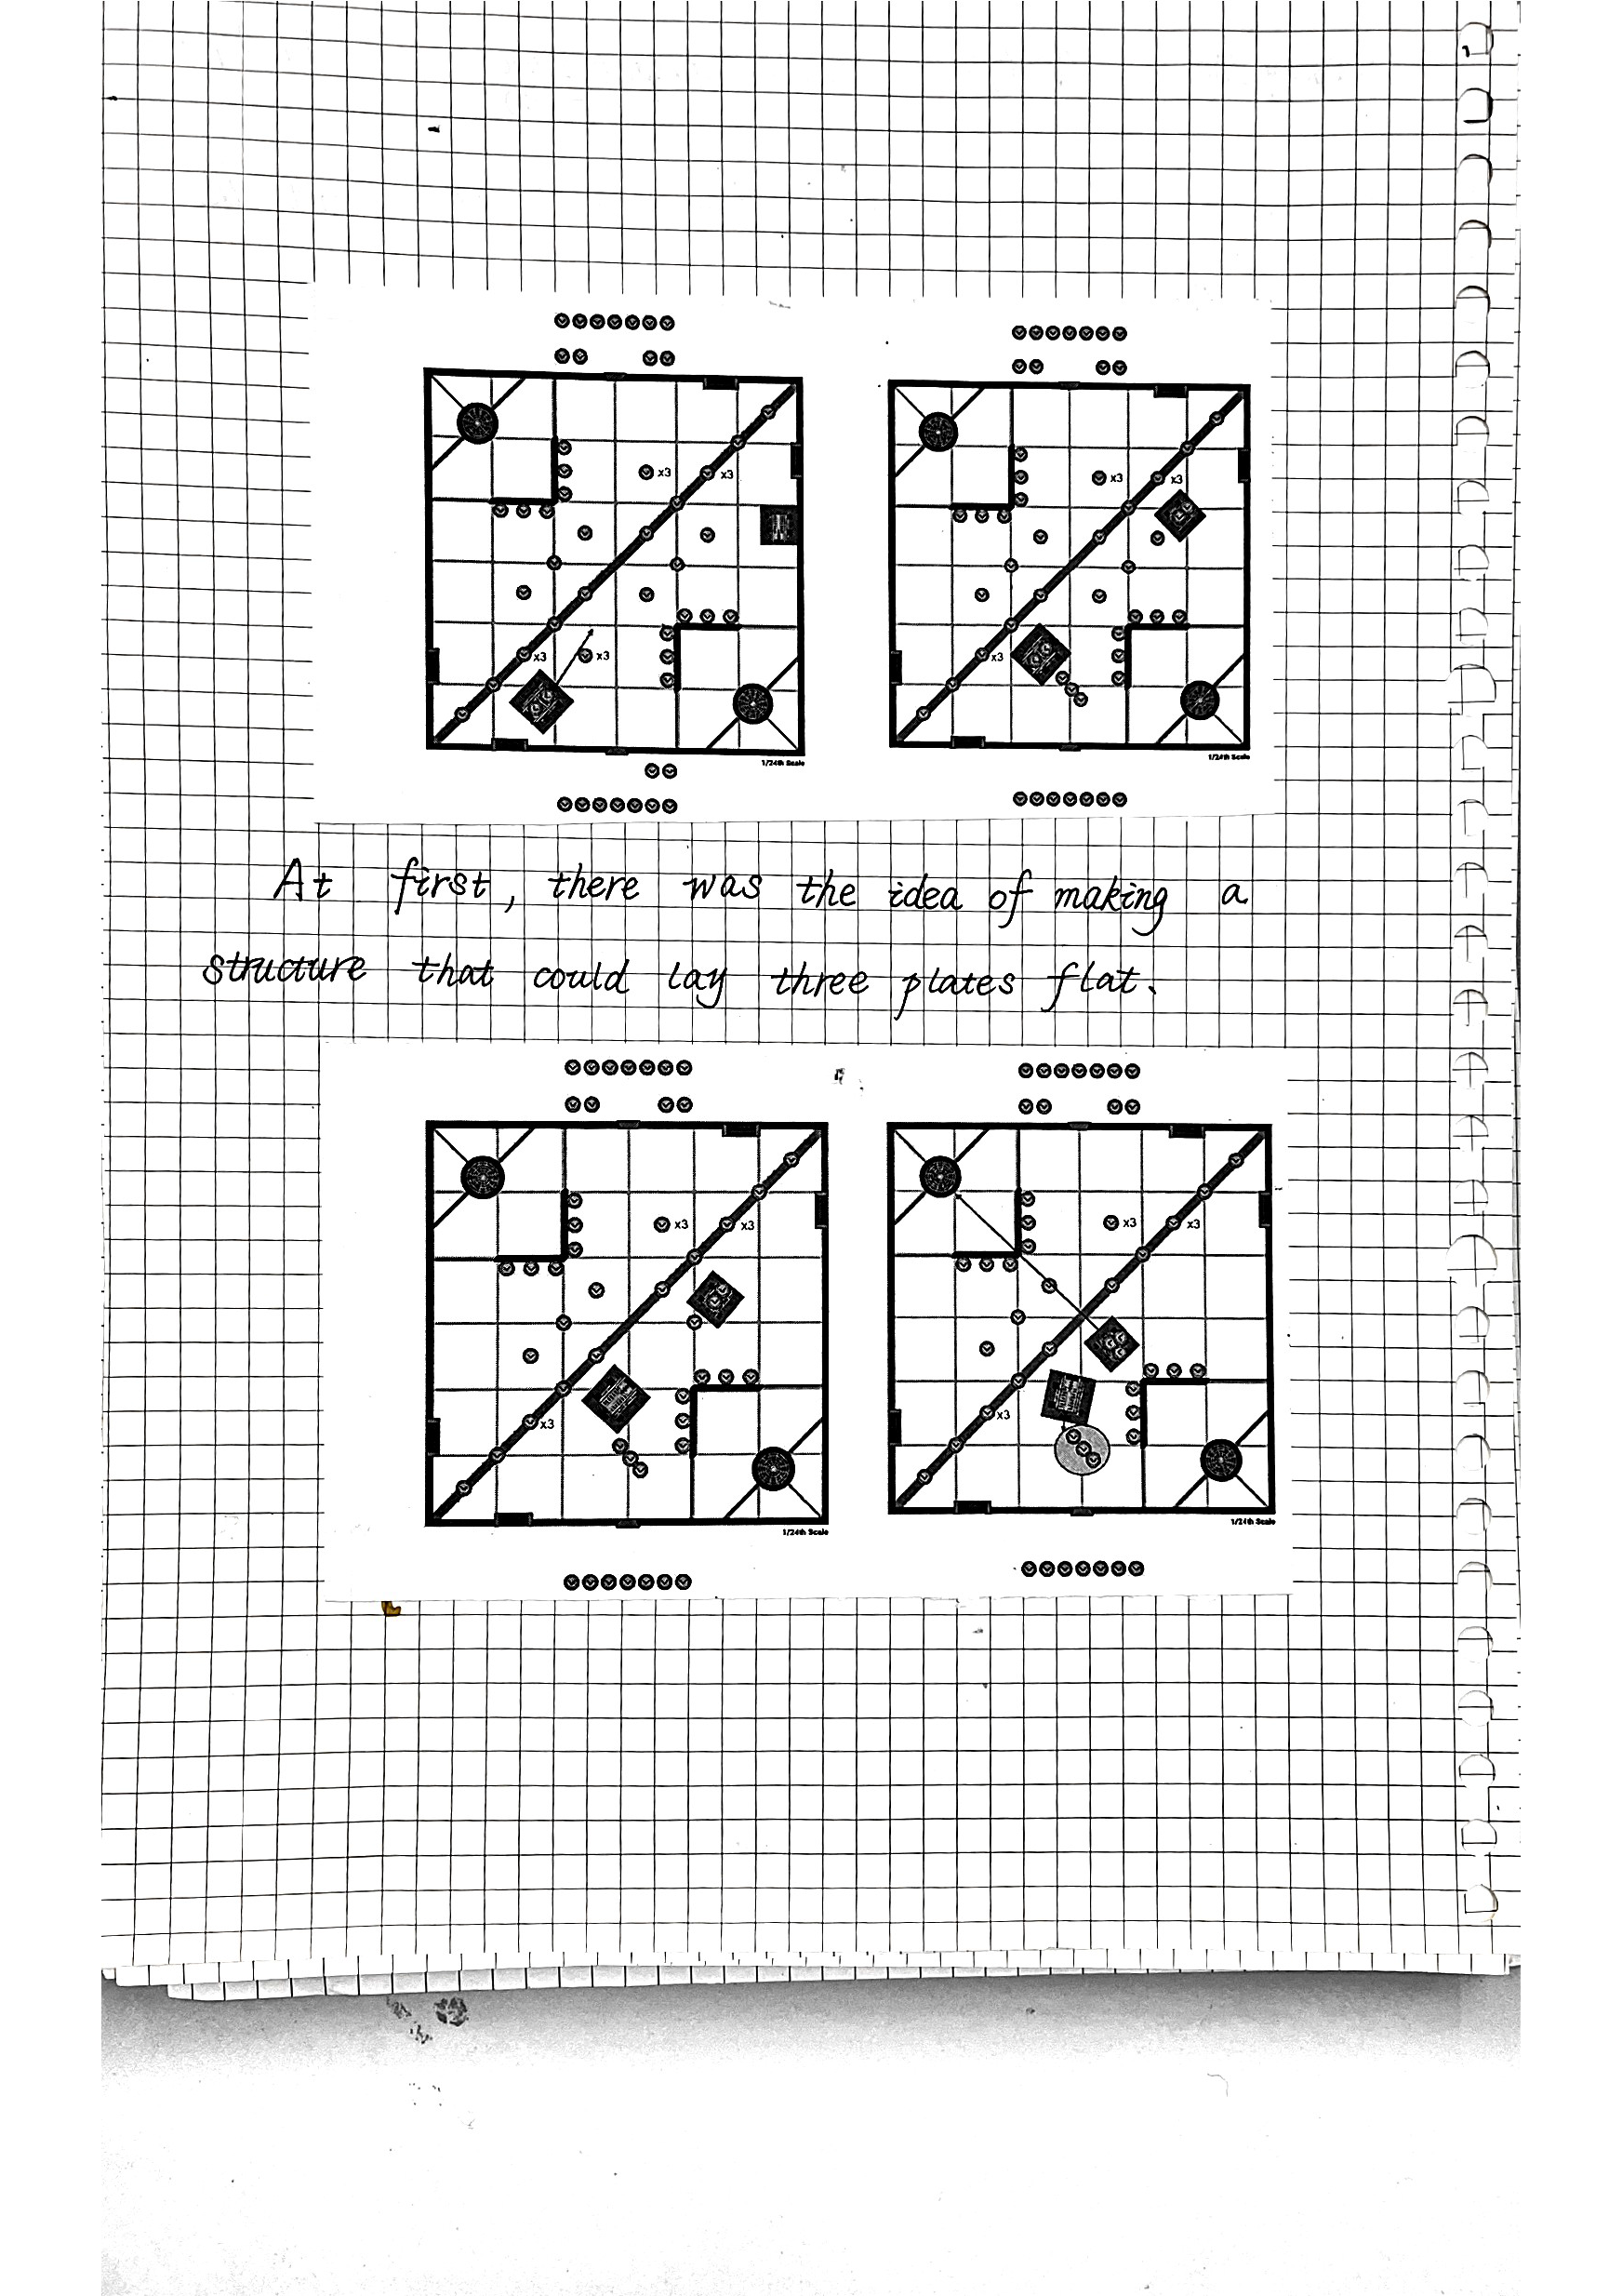 x3 x3
x3 x3
1/24th Scale
x3 x3
x3
1/24th Scale
At first, there was the idea of making a
structure that could lay three plates flat.
x3 x3
x3
1/24th Scale
x3 x3
x3
1/24th Scale